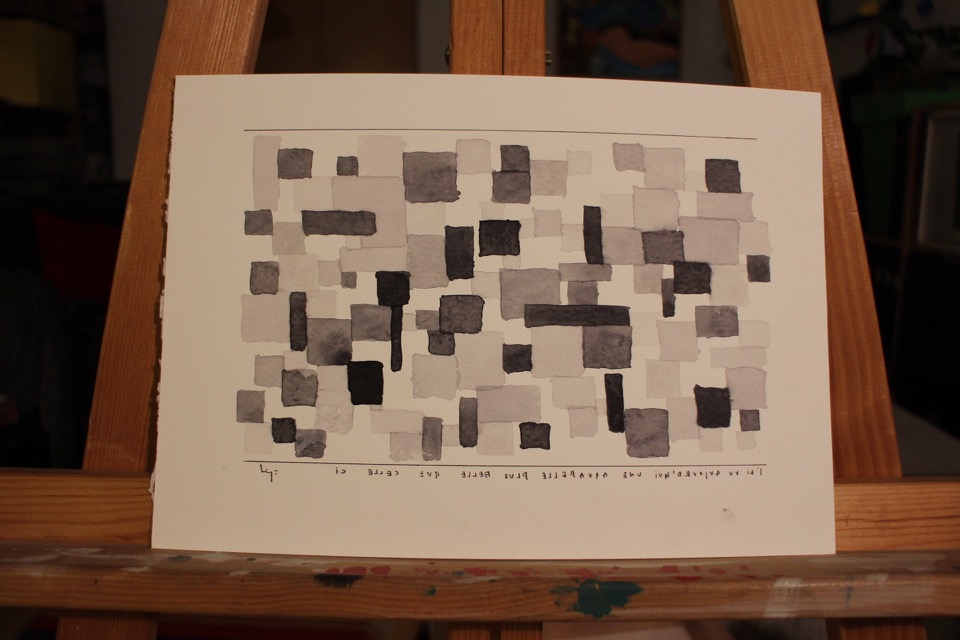 J'AI VU AUJOURD'HUI UNE AQUARELLE PLUS BELLE QUE CELLE Ci